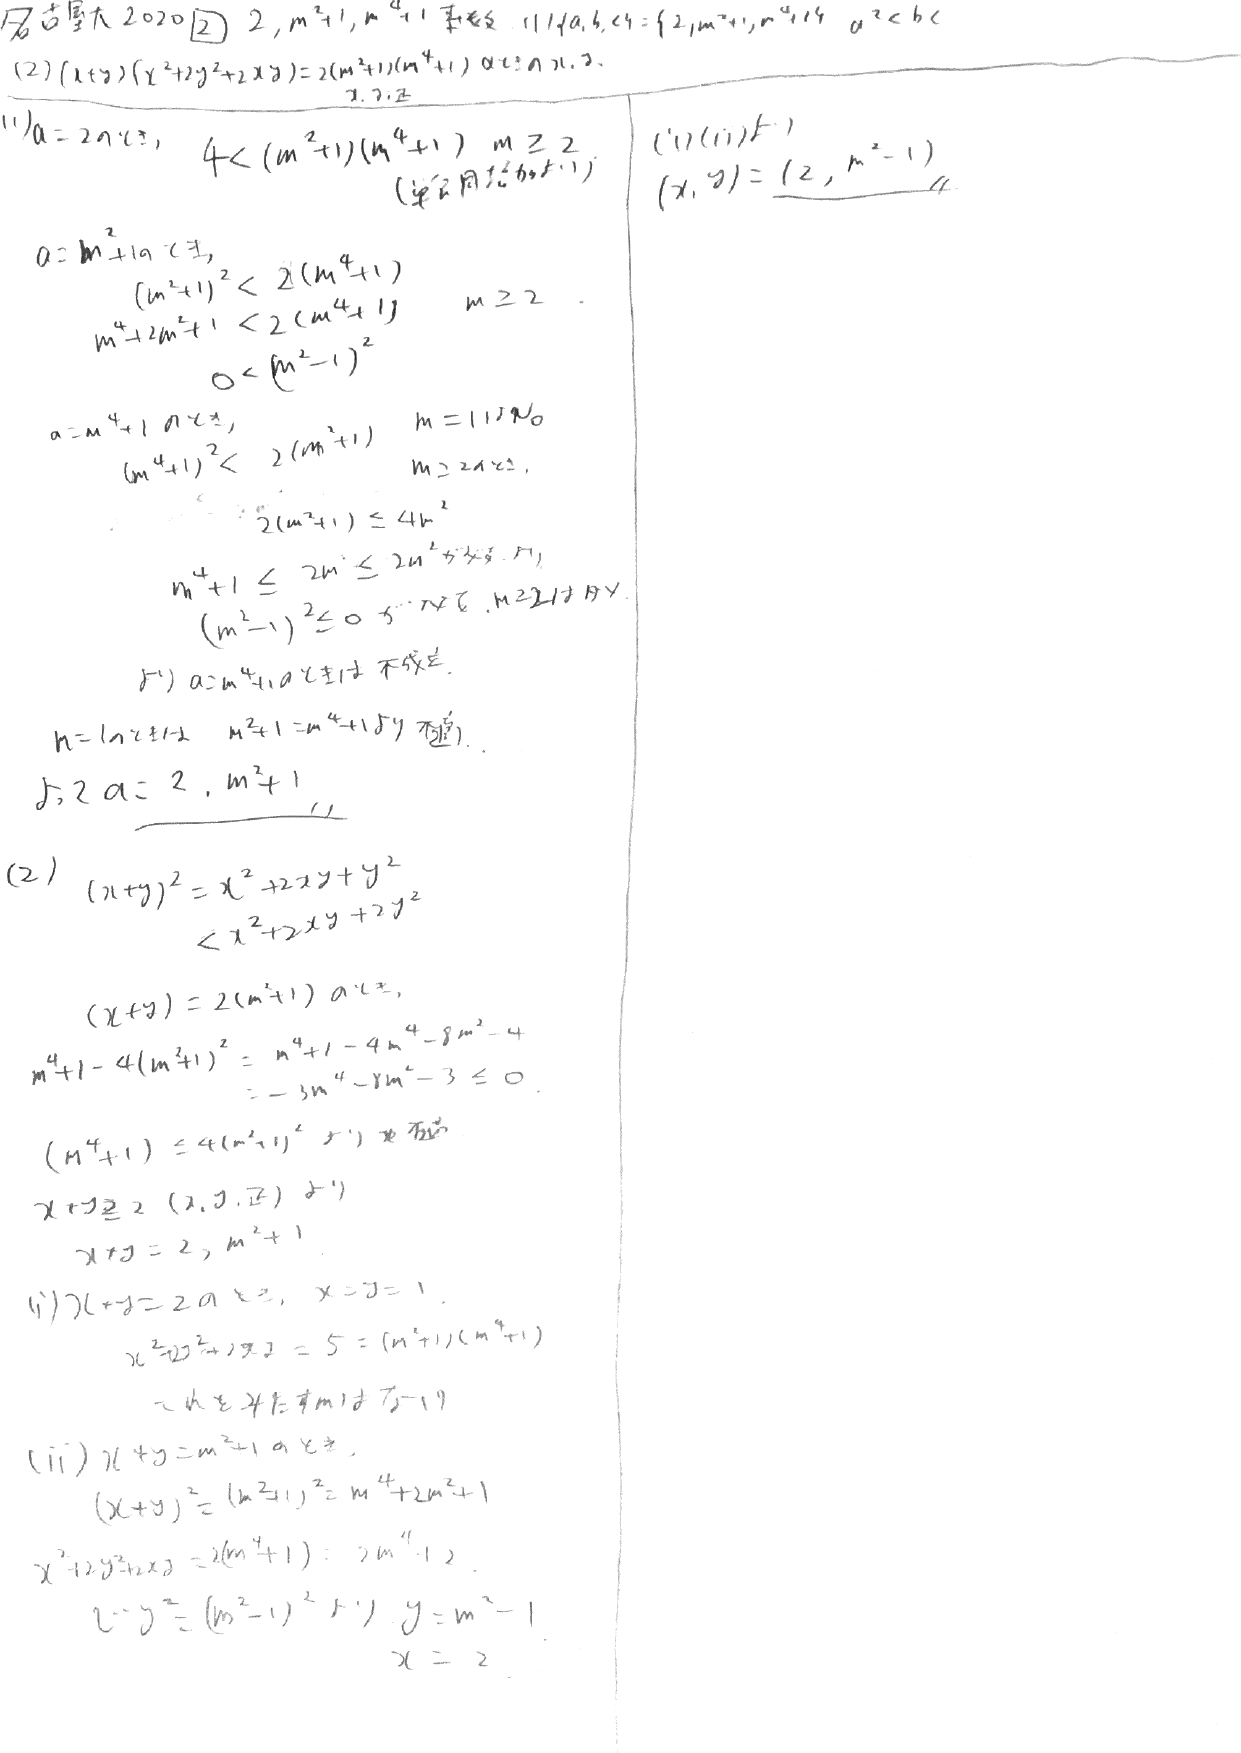 名古屋大 2020 [2] 2, m²+1, m⁴+1 素数 (1) {a,b,c} = {2, m²+1, m⁴+1} a²<bc
(2) (x+y)(x²+2y²+2xy)=2(m²+1)(m⁴+1) のときの x.y.
x.y.正
(1) a=2のとき, 4<(m²+1)(m⁴+1) m≧2
(単調増加より)
a=m²+1のとき,
(m²+1)²<2(m⁴+1)
m⁴+2m²+1<2(m⁴+1) m≧2.
0<(m²-1)²
a=m⁴+1のとき, m=1はNo
(m⁴+1)²<2(m²+1) m≧2のとき,
2(m²+1)≦4m²
m⁴+1≦2m≦2m²
(m²-1)²≦0
より a=m⁴+1のときは不成立.
m=1のときは m²+1=m⁴+1より不適.
よって a=2, m²+1
(2) (x+y)²=x²+2xy+y²
<x²+2xy+2y²
(x+y)=2(m²+1)のとき,
m⁴+1-4(m²+1)²=m⁴+1-4m⁴-8m²-4
=-3m⁴-8m²-3≦0.
(m⁴+1)≦4(m²+1)² より 不適
x+y≧2 (x,y.正) より
x+y=2, m²+1
(i) x+y=2のとき, x=y=1.
x²+2y²+2xy=5=(m²+1)(m⁴+1)
これをみたすmはない
(ii) x+y=m²+1のとき.
(x+y)²=(m²+1)²=m⁴+2m²+1
x²+2y²+2xy=2(m⁴+1)=2m⁴+2.
y²=(m²-1)²より y=m²-1.
x=2.
(i)(ii)より
(x,y)=(2, m²-1)